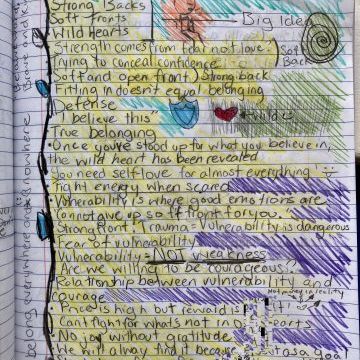 Strong Backs
Soft fronts
Big Idea
Wild hearts
Strength comes from fear not love?
Soft
Back
Trying to conceal confidence
Soft and open front) Strong back
Fitting in doesn't equal belonging
Defense
"I believe this"
=Wild
True belonging
• Once you've stood up for what you believe in,
the wild heart has been revealed
You need self love for almost everything!
Fight energy when scared
• Vulnerability is where good emotions are
Cannot give up soft front for you.
Strong front, trauma = Vulnerability is dangerous
Fear of vulnerability
Vulnerability NOT weakness
Are we willing to be courageous!?
Relationship between vulnerability and
courage
Price is high but reward is
Can't fight for what's not in
No joy without gratitude
We will always find it because
belong everywhere and nowhere